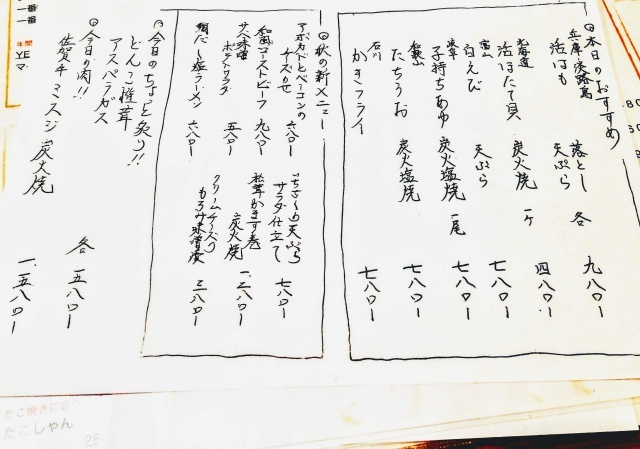 ◎本日のおすすめ
兵庫・淡路島
活はも 落とし 天ぷら 各 九八〇ー
北海道
活ほたて貝 炭火焼 一ケ 四八〇ー
富山
白えび 天ぷら 七八〇ー
岐阜
子持ちあゆ 炭火塩焼 一尾 七八〇ー
和歌山
たちうお 炭火塩焼 七八〇ー
石川
かきフライ 七八〇ー
◎秋の新メニュー
アボカドとベーコンの
チーズのせ 六八〇ー
和風ローストビーフ 九八〇ー
サバ味噌
ポテトサラダ 五八〇ー
鯛だし塩ラーメン 六八〇ー
天ぷら
サラダ仕立て 七八〇ー
松茸かます巻
炭火焼 一、二八〇ー
クリームチーズの
もろみ味噌漬 三八〇ー
◎今日のちょっと炙り!!
どんこ椎茸
アスパラガス 各 五八〇ー
◎今日の肉!!
佐賀牛 ミスジ 炭火焼 一、五八〇ー
一番
一番
年間
YE
マ
たこ焼きに
たこしゃん
25